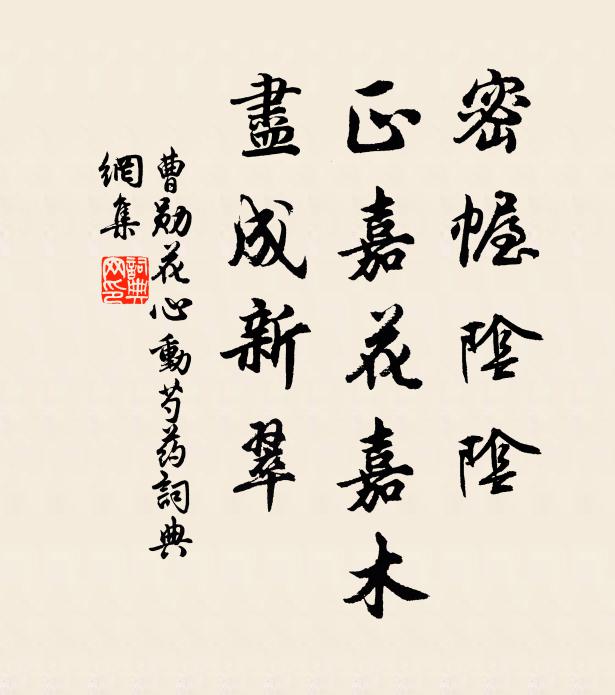 密幄陰陰
正嘉花嘉木
盡成新翠
曹勛花心動芍药詞典
網集
詞典
网印